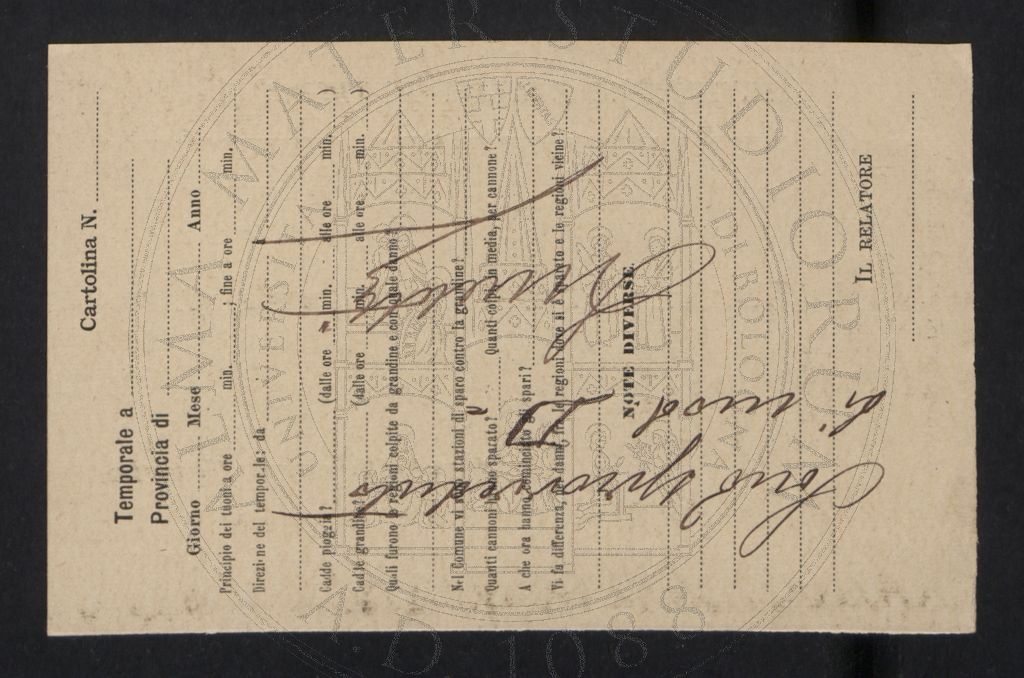 Cartolina N.
Temporale a
Provincia di
Giorno Mese Anno
Principio dei tuoni a ore min. ; fine a ore min.
Direzione del temporale: da
Cadde pioggia? (dalle ore min. alle ore min. )
Cadde grandine? (dalle ore min. alle ore min. )
Quali furono le regioni colpite da grandine e con quale danno?
Nel Comune vi sono stazioni di sparo contro la grandine?
Quanti cannoni hanno sparato? Quanti colpi in media, per cannone?
A che ora hanno cominciato gli spari?
Vi fu differenza, pei danni, fra le regioni dove si è sparato e le regioni vicine?
NOTE DIVERSE.
IL RELATORE
Sono sprovveduto
di mod D
ALMA MATER STUDIORUM
A.D. 1088